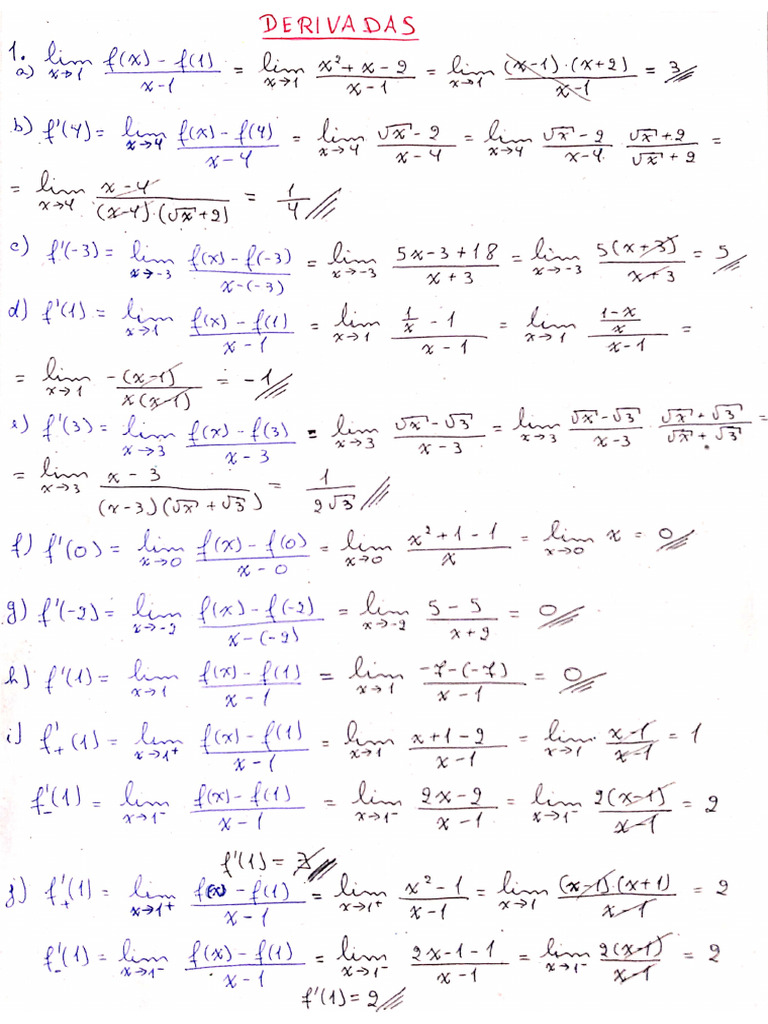 DERIVADAS
1. a) lim x→1 (f(x) - f(1))/(x-1) = lim x→1 (x² + x - 2)/(x-1) = lim x→1 ((x-1)·(x+2))/(x-1) = 3
b) f'(4) = lim x→4 (f(x) - f(4))/(x-4) = lim x→4 (√x - 2)/(x-4) = lim x→4 (√x - 2)/(x-4) · (√x + 2)/(√x + 2) =
= lim x→4 (x-4)/((x-4)·(√x + 2)) = 1/4
c) f'(-3) = lim x→-3 (f(x) - f(-3))/(x-(-3)) = lim x→-3 (5x - 3 + 18)/(x+3) = lim x→-3 (5(x+3))/(x+3) = 5
d) f'(1) = lim x→1 (f(x) - f(1))/(x-1) = lim x→1 (1/x - 1)/(x-1) = lim x→1 ((1-x)/x)/(x-1) =
= lim x→1 (-(x-1))/(x(x-1)) = -1
e) f'(3) = lim x→3 (f(x) - f(3))/(x-3) = lim x→3 (√x - √3)/(x-3) = lim x→3 (√x - √3)/(x-3) · (√x + √3)/(√x + √3) =
= lim x→3 (x-3)/((x-3)(√x + √3)) = 1/(2√3)
f) f'(0) = lim x→0 (f(x) - f(0))/(x-0) = lim x→0 (x² + 1 - 1)/x = lim x→0 x = 0
g) f'(-2) = lim x→-2 (f(x) - f(-2))/(x-(-2)) = lim x→-2 (5-5)/(x+2) = 0
h) f'(1) = lim x→1 (f(x) - f(1))/(x-1) = lim x→1 (-7-(-7))/(x-1) = 0
i) f'₊(1) = lim x→1⁺ (f(x) - f(1))/(x-1) = lim x→1 (x+1-2)/(x-1) = lim x→1 (x-1)/(x-1) = 1
f'₋(1) = lim x→1⁻ (f(x) - f(1))/(x-1) = lim x→1⁻ (2x-2)/(x-1) = lim x→1⁻ (2(x-1))/(x-1) = 2
f'(1) = ∄
j) f'₊(1) = lim x→1⁺ (f(x) - f(1))/(x-1) = lim x→1⁺ (x²-1)/(x-1) = lim x→1 ((x-1)·(x+1))/(x-1) = 2
f'₋(1) = lim x→1⁻ (f(x) - f(1))/(x-1) = lim x→1⁻ (2x-1-1)/(x-1) = lim x→1⁻ (2(x-1))/(x-1) = 2
f'(1) = 2